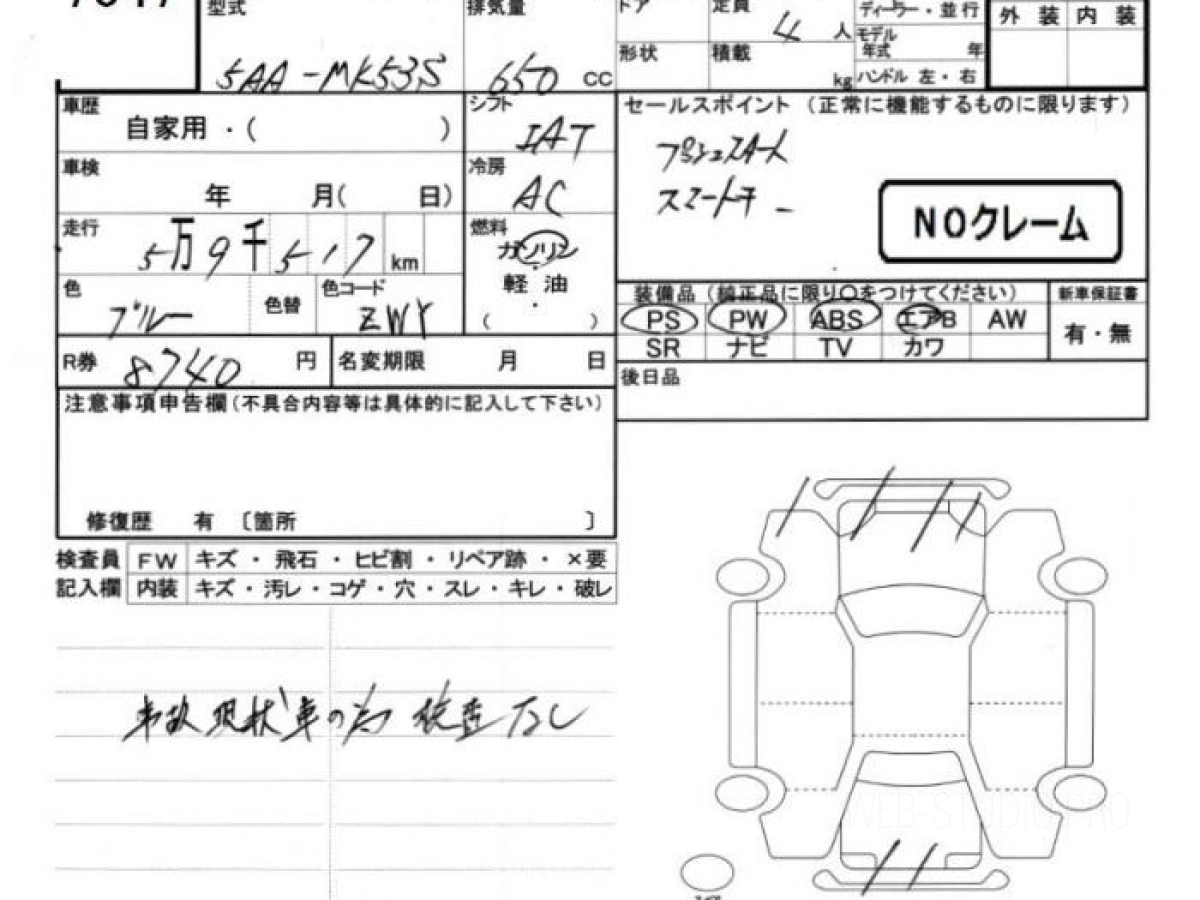 型式 排気量 ドア 定員 4 人 ディーラー・並行 外装 内装
5AA-MK53S 650 CC 形状 積載 kg モデル年式 年
ハンドル 左・右
車歴 自家用・( )
シフト IAT
セールスポイント（正常に機能するものに限ります）
プッシュスタート
スマートキー
NOクレーム
車検 年 月( 日)
冷房 AC
走行 5万9千517km
燃料 ガソリン
軽油
・
( )
色 ブルー 色替 色コード ZWY
装備品（純正品に限り○をつけてください） 新車保証書
PS PW ABS エアB AW 有・無
SR ナビ TV カワ
R券 8740 円 名変期限 月 日
後日品
注意事項申告欄(不具合内容等は具体的に記入して下さい)
修復歴 有 〔箇所 〕
検査員 FW キズ・飛石・ヒビ割・リペア跡・×要
記入欄 内装 キズ・汚レ・コゲ・穴・スレ・キレ・破レ
事故現状車の為 検査なし
WEB-STUDIO.PRO